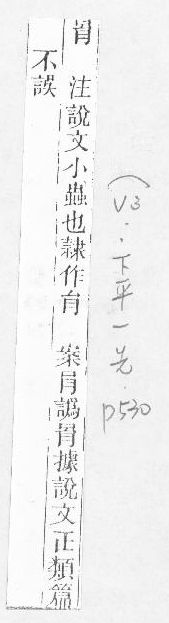 (V3:下平一先.p530
肙 注說文小蟲也隸作肙 案肙譌肙據說文正類篇
不誤